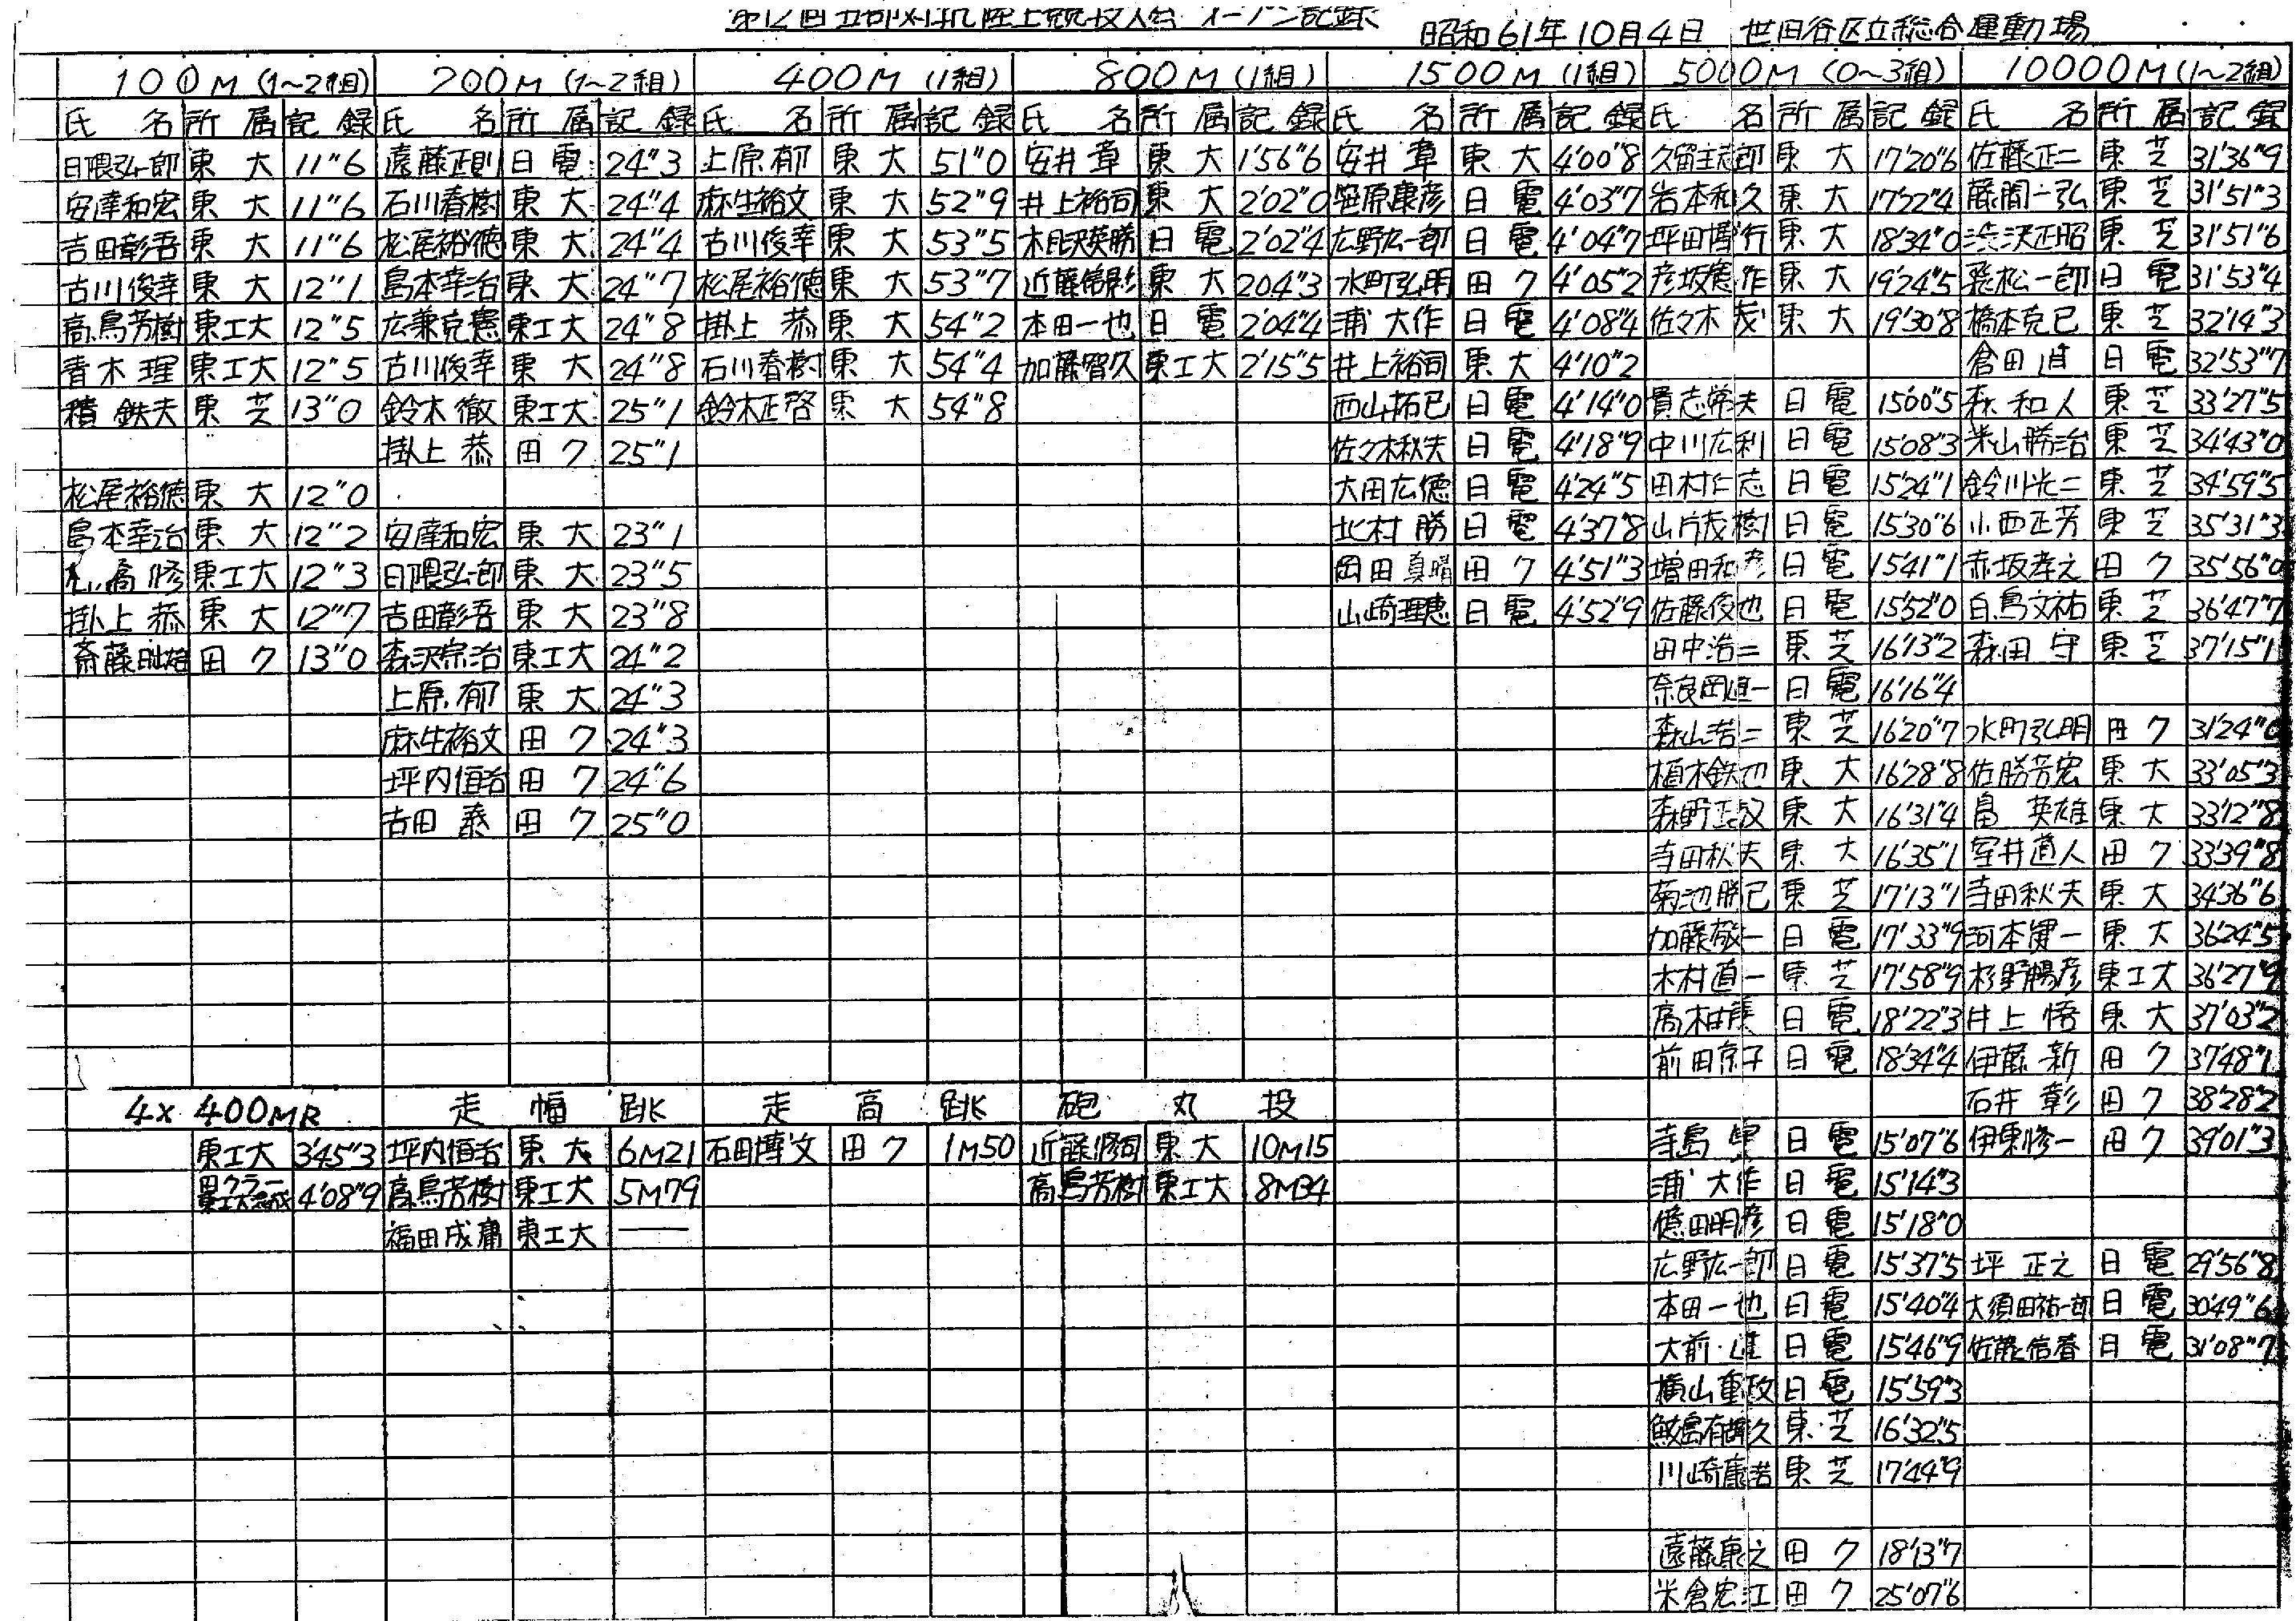 昭和61年10月4日 世田谷区立総合運動場
100M (1~2組) 200M (1~2組) 400M (1組) 800M (1組) 1500M (1組) 5000M (0~3組) 10000M (1~2組)
氏名 所属 記録 氏名 所属 記録 氏名 所属 記録 氏名 所属 記録 氏名 所属 記録 氏名 所属 記録 氏名 所属 記録
日隈弘一郎 東大 11"6 遠藤正則 日電 24"3 上原郁 東大 51"0 安井章 東大 1'56"6 安井章 東大 4'00"8 東大 17'20"6 佐藤正二 東芝 31'36"9
安達和宏 東大 11"6 石川春樹 東大 24"4 麻生裕文 東大 52"9 井上裕司 東大 2'02"0 笹原康彦 日電 4'03"7 岩本和久 東大 17'22"4 藤間一弘 東芝 31'51"3
吉田彰吾 東大 11"6 松尾裕徳 東大 24"4 古川俊幸 東大 53"5 日電 2'02"4 広野広一郎 日電 4'04"7 坪田博行 東大 18'34"0 渋沢正昭 東芝 31'51"6
古川俊幸 東大 12"1 島本幸治 東大 24"7 松尾裕徳 東大 53"7 近藤信彰 東大 2'04"3 水町弘明 田ク 4'05"2 彦坂 作 東大 19'24"5 一郎 日電 31'53"4
高島芳樹 東工大 12"5 広兼克憲 東工大 24"8 掛上恭 東大 54"2 本田一也 日電 2'04"4 浦大作 日電 4'08"4 佐々木茂 東大 19'30"8 橋本克己 東芝 32'14"3
青木理 東工大 12"5 古川俊幸 東大 24"8 石川春樹 東大 54"4 加藤智久 東工大 2'15"5 井上裕司 東大 4'10"2 倉田 日電 32'53"7
積鉄夫 東芝 13"0 鈴木徹 東工大 25"1 鈴木正啓 東大 54"8 西山拓己 日電 4'14"0 貴志常夫 日電 15'00"5 森和人 東芝 33'27"5
掛上恭 田ク 25"1 佐々木秋夫 日電 4'18"9 中川広利 日電 15'08"3 米山勝治 東芝 34'43"0
松尾裕徳 東大 12"0 大田広徳 日電 4'24"5 田村仁志 日電 15'24"1 鈴川光二 東芝 34'59"5
島本幸治 東大 12"2 安達和宏 東大 23"1 北村勝 日電 4'37"8 山片茂樹 日電 15'30"6 小西正芳 東芝 35'31"3
高修 東工大 12"3 日隈弘一郎 東大 23"5 岡田真晴 田ク 4'51"3 増田和彦 日電 15'41"1 赤坂孝之 田ク 35'56"0
掛上恭 東大 12"7 吉田彰吾 東大 23"8 山崎理恵 日電 4'52"9 佐藤俊也 日電 15'52"0 白鳥文祐 東芝 36'47"7
斎藤 田ク 13"0 森沢宗治 東工大 24"2 田中浩二 東芝 16'13"2 森田守 東芝 37'15"1
上原郁 東大 24"3 奈良岡 一 日電 16'16"4
麻生裕文 田ク 24"3 森山浩二 東芝 16'20"7 水町弘明 田ク 31'24"0
坪内恒治 田ク 24"6 植木鉄也 東大 16'28"8 佐勝芳宏 東大 33'05"3
吉田泰 田ク 25"0 森野 東大 16'31"4 畠英雄 東大 33'12"8
寺田秋夫 東大 16'35"1 室井直人 田ク 33'39"8
菊池勝己 東芝 17'13"1 寺田秋夫 東大 34'36"6
加藤敬一 日電 17'33"9 河本健一 東大 36'24"5
木村直一 東芝 17'58"9 杉野暢彦 東工大 36'27"9
日電 18'22"3 井上悟 東大 37'03"2
前田京子 日電 18'34"4 伊藤新 田ク 37'48"1
石井彰 田ク 38'28"2
4×400MR 走幅跳 走高跳 砲丸投
東工大 3'45"3 坪内恒治 東大 6M21 石田博文 田ク 1M50 近藤修司 東大 10M15 寺島 日電 15'07"6 伊東修一 田ク 39'01"3
4'08"9 高島芳樹 東工大 5M79 高島芳樹 東工大 8M34 浦大作 日電 15'14"3
福田成庸 東工大 ―― 億田明彦 日電 15'18"0
広野広一郎 日電 15'37"5 坪正之 日電 29'56"8
本田一也 日電 15'40"4 大須田祐一郎 日電 30'49"6
大前 日電 15'46"9 佐藤信春 日電 31'08"7
横山重政 日電 15'59"3
鮫島 久 東芝 16'32"5
川崎康浩 東芝 17'44"9
遠藤康之 田ク 18'13"7
米倉宏江 田ク 25'07"6